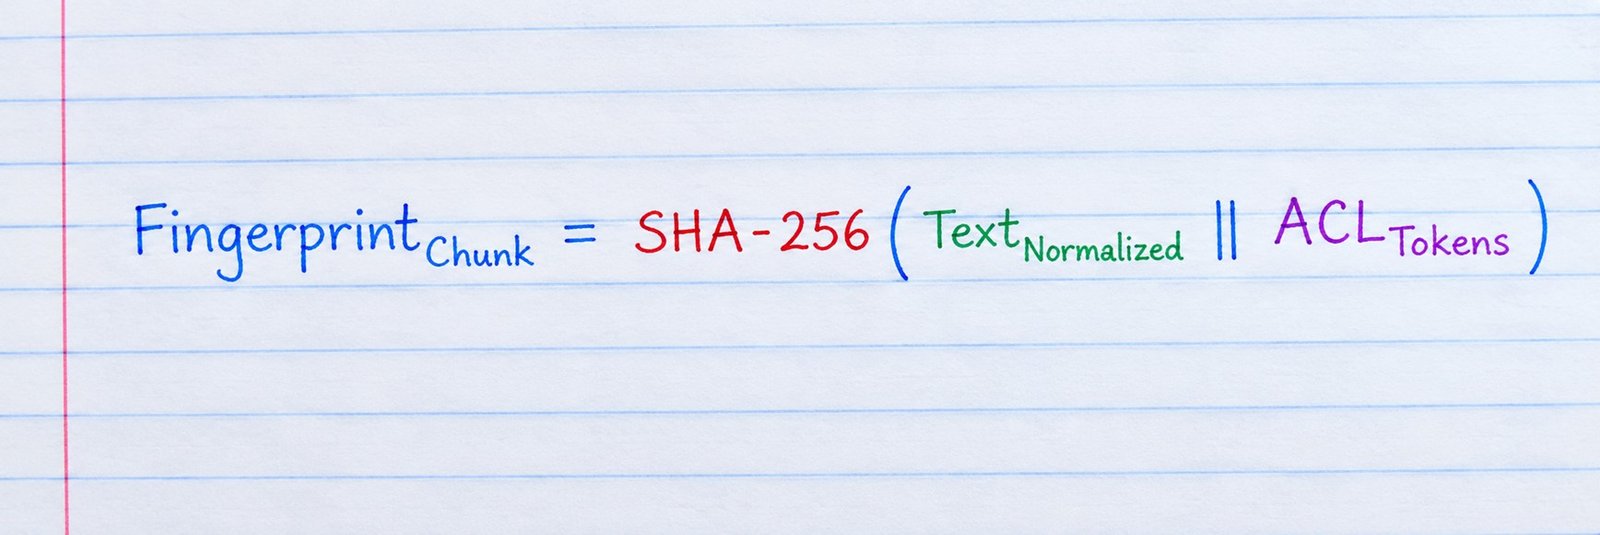 Fingerprint_Chunk = SHA-256 ( Text_Normalized || ACL_Tokens )